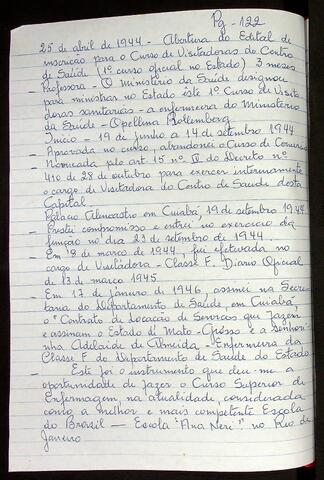 Pg - 122
25 de abril de 1944 - Abertura do Edital de
inscrição para o Curso de Visitadoras do Centro
de Saúde (1º curso oficial no Estado) 3 meses
- Professora - O Ministério da Saúde designou
para ministrar no Estado êste 1º Curso de Visita
doras sanitarias - a enfermeira do Ministério
da Saúde - Opellina Rollemberg
- Início - 19 de junho a 14 de setembro 1944
- Aprovada no curso, abandonei o Curso de Comercio
- Nomeada pelo art. 15 nº II do Decreto nº
410 de 28 de outubro para exercer interinamente
o cargo de Visitadora do Centro de Saúde desta
Capital.
Palácio Alencastro em Cuiabá, 19 de setembro 1944
- Prestei compromisso e entrei no exercício da
função no dia 23 de setembro de 1944
- Em 8 de março de 1944, fui efetivada no
cargo de Visitadora - Classe F. Diario Oficial
de 13 de março 1945.
- Em 17 de janeiro de 1946, assinei na Secre
taria do Departamento de Saúde, em Cuiabá,
o "Contrato de Locação de Serviços que fazem
e assinam o Estado de Mato-Grosso e a senhori
nha Adelaide de Almeida - Enfermeira da
Classe F do Departamento de Saúde do Estado
- Este foi o instrumento que deu-me a
oportunidade de fazer o Curso Superior de
Enfermagem, na atualidade, considerada
como a melhor e mais competente Escola
do Brasil - Escola "Ana Neri" no Rio de
Janeiro